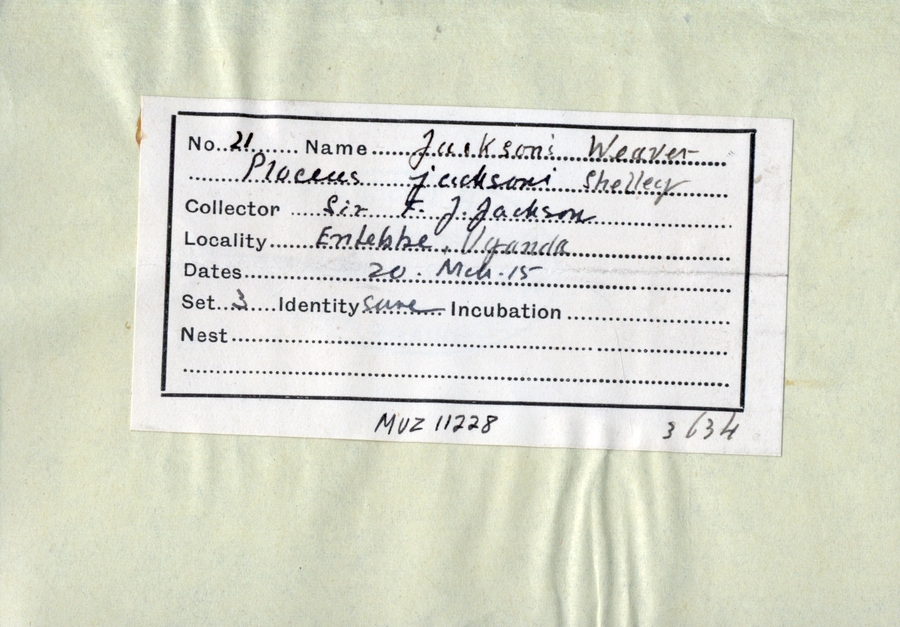 No. 21 Name Jackson's Weaver
Ploceus jacksoni Shelley
Collector Sir F. J. Jackson
Locality Entebbe, Uganda
Dates 20. Mch. 15
Set 3 Identity sure Incubation
Nest
MVZ 11228 3634